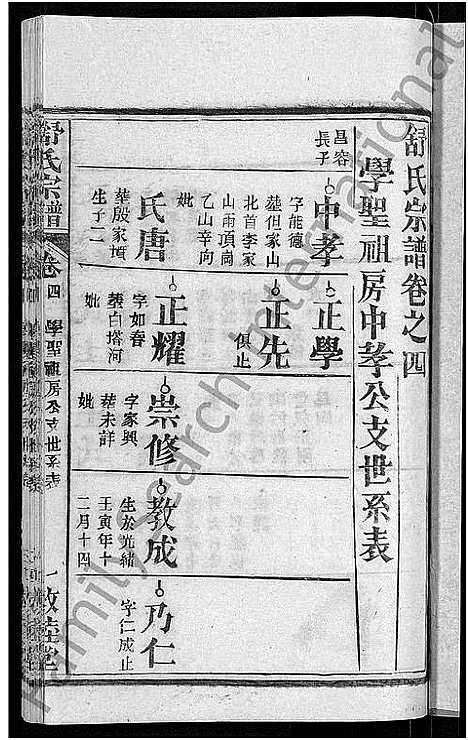 舒氏宗譜卷之四
學聖祖房中孝公支世系表
昌容
長子
中孝
字能德
葬但家山
北首李家
山南頂崗
乙山辛向
妣
氏唐
葬殷家墳
生子二
正學
正先
俱止
正耀
字如春
葬白塔河
妣
崇修
字家興
葬未詳
妣
教成
生於光緒
壬寅年十
二月十四
乃仁
字仁成止
舒氏宗譜
卷四
學聖祖房中孝公支世系表
一
敦睦堂
Family Search International